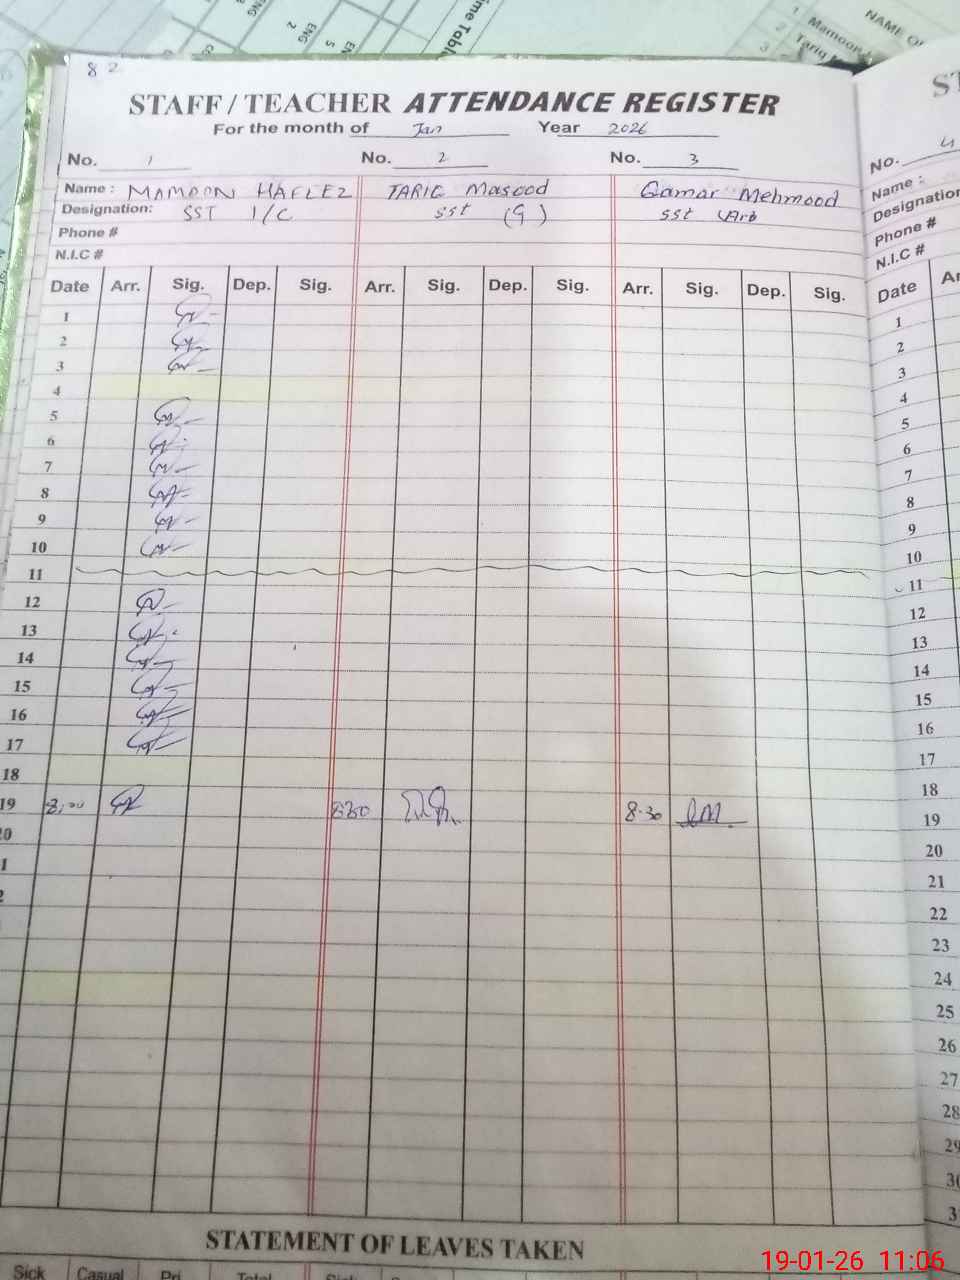 ENG
2
ENG
5
Time Table
NAME OF
1 Mamoon
2 Tariq
3
82
STAFF / TEACHER ATTENDANCE REGISTER
For the month of Jan Year 2026
No. 1 No. 2 No. 3
Name : MAMOON HAFEEZ TARIQ Masood Qamar Mehmood
Designation: SST I/C SST (G) SST Arb
Phone #
N.I.C #
Date Arr. Sig. Dep. Sig. Arr. Sig. Dep. Sig. Arr. Sig. Dep. Sig.
1
2
3
4
5
6
7
8
9
10
11
12
13
14
15
16
17
18
19 8:00 8:30 8.30
20
STATEMENT OF LEAVES TAKEN
Sick Casual Pri Total Sick
ST
No. 4
Name :
Designation
Phone #
N.I.C #
Date
1
2
3
4
5
6
7
8
9
10
11
12
13
14
15
16
17
18
19
20
21
22
23
24
25
26
27
28
29
30
19-01-26 11:06